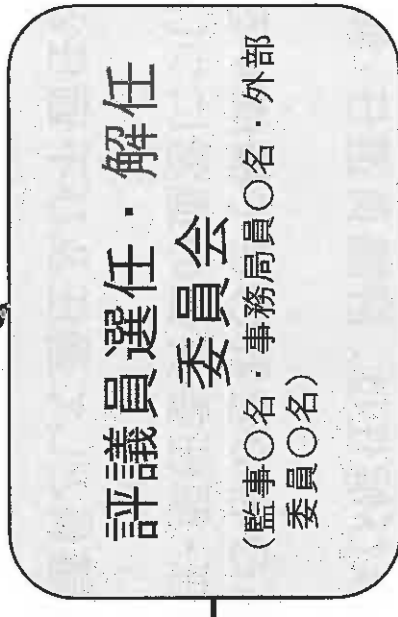 評議員選任・解任
委員会
（監事〇名・事務局員〇名・外部
委員〇名）